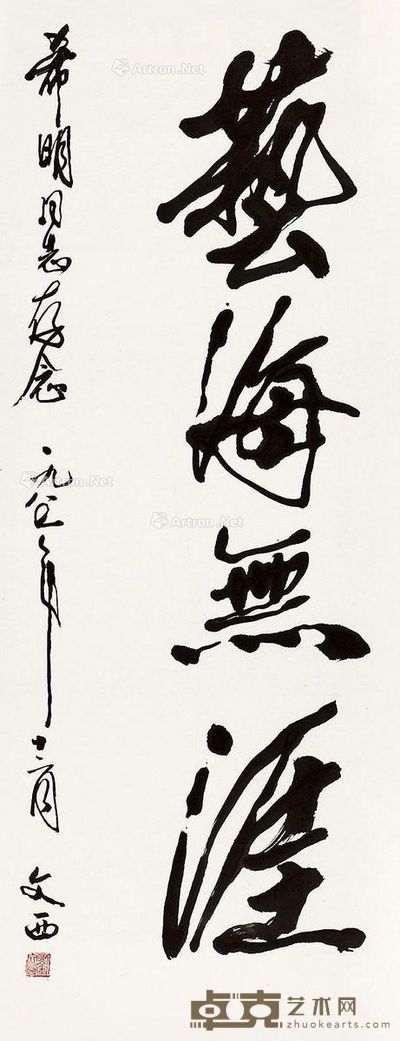 藝海無涯
希明同志存念 一九八〇年十二月 文西
Artron.Net
Artron.Net
Artron.Net
卓克艺术网
zhuokearts.com